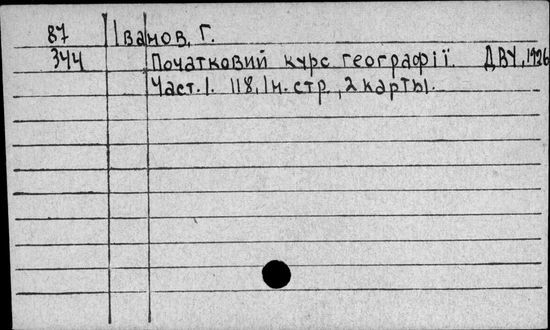 87 Іванов, Г.
344 Початковий курс географії. ДВУ, 1926
Част. I. 118, 1 н. стр., 2 карты.